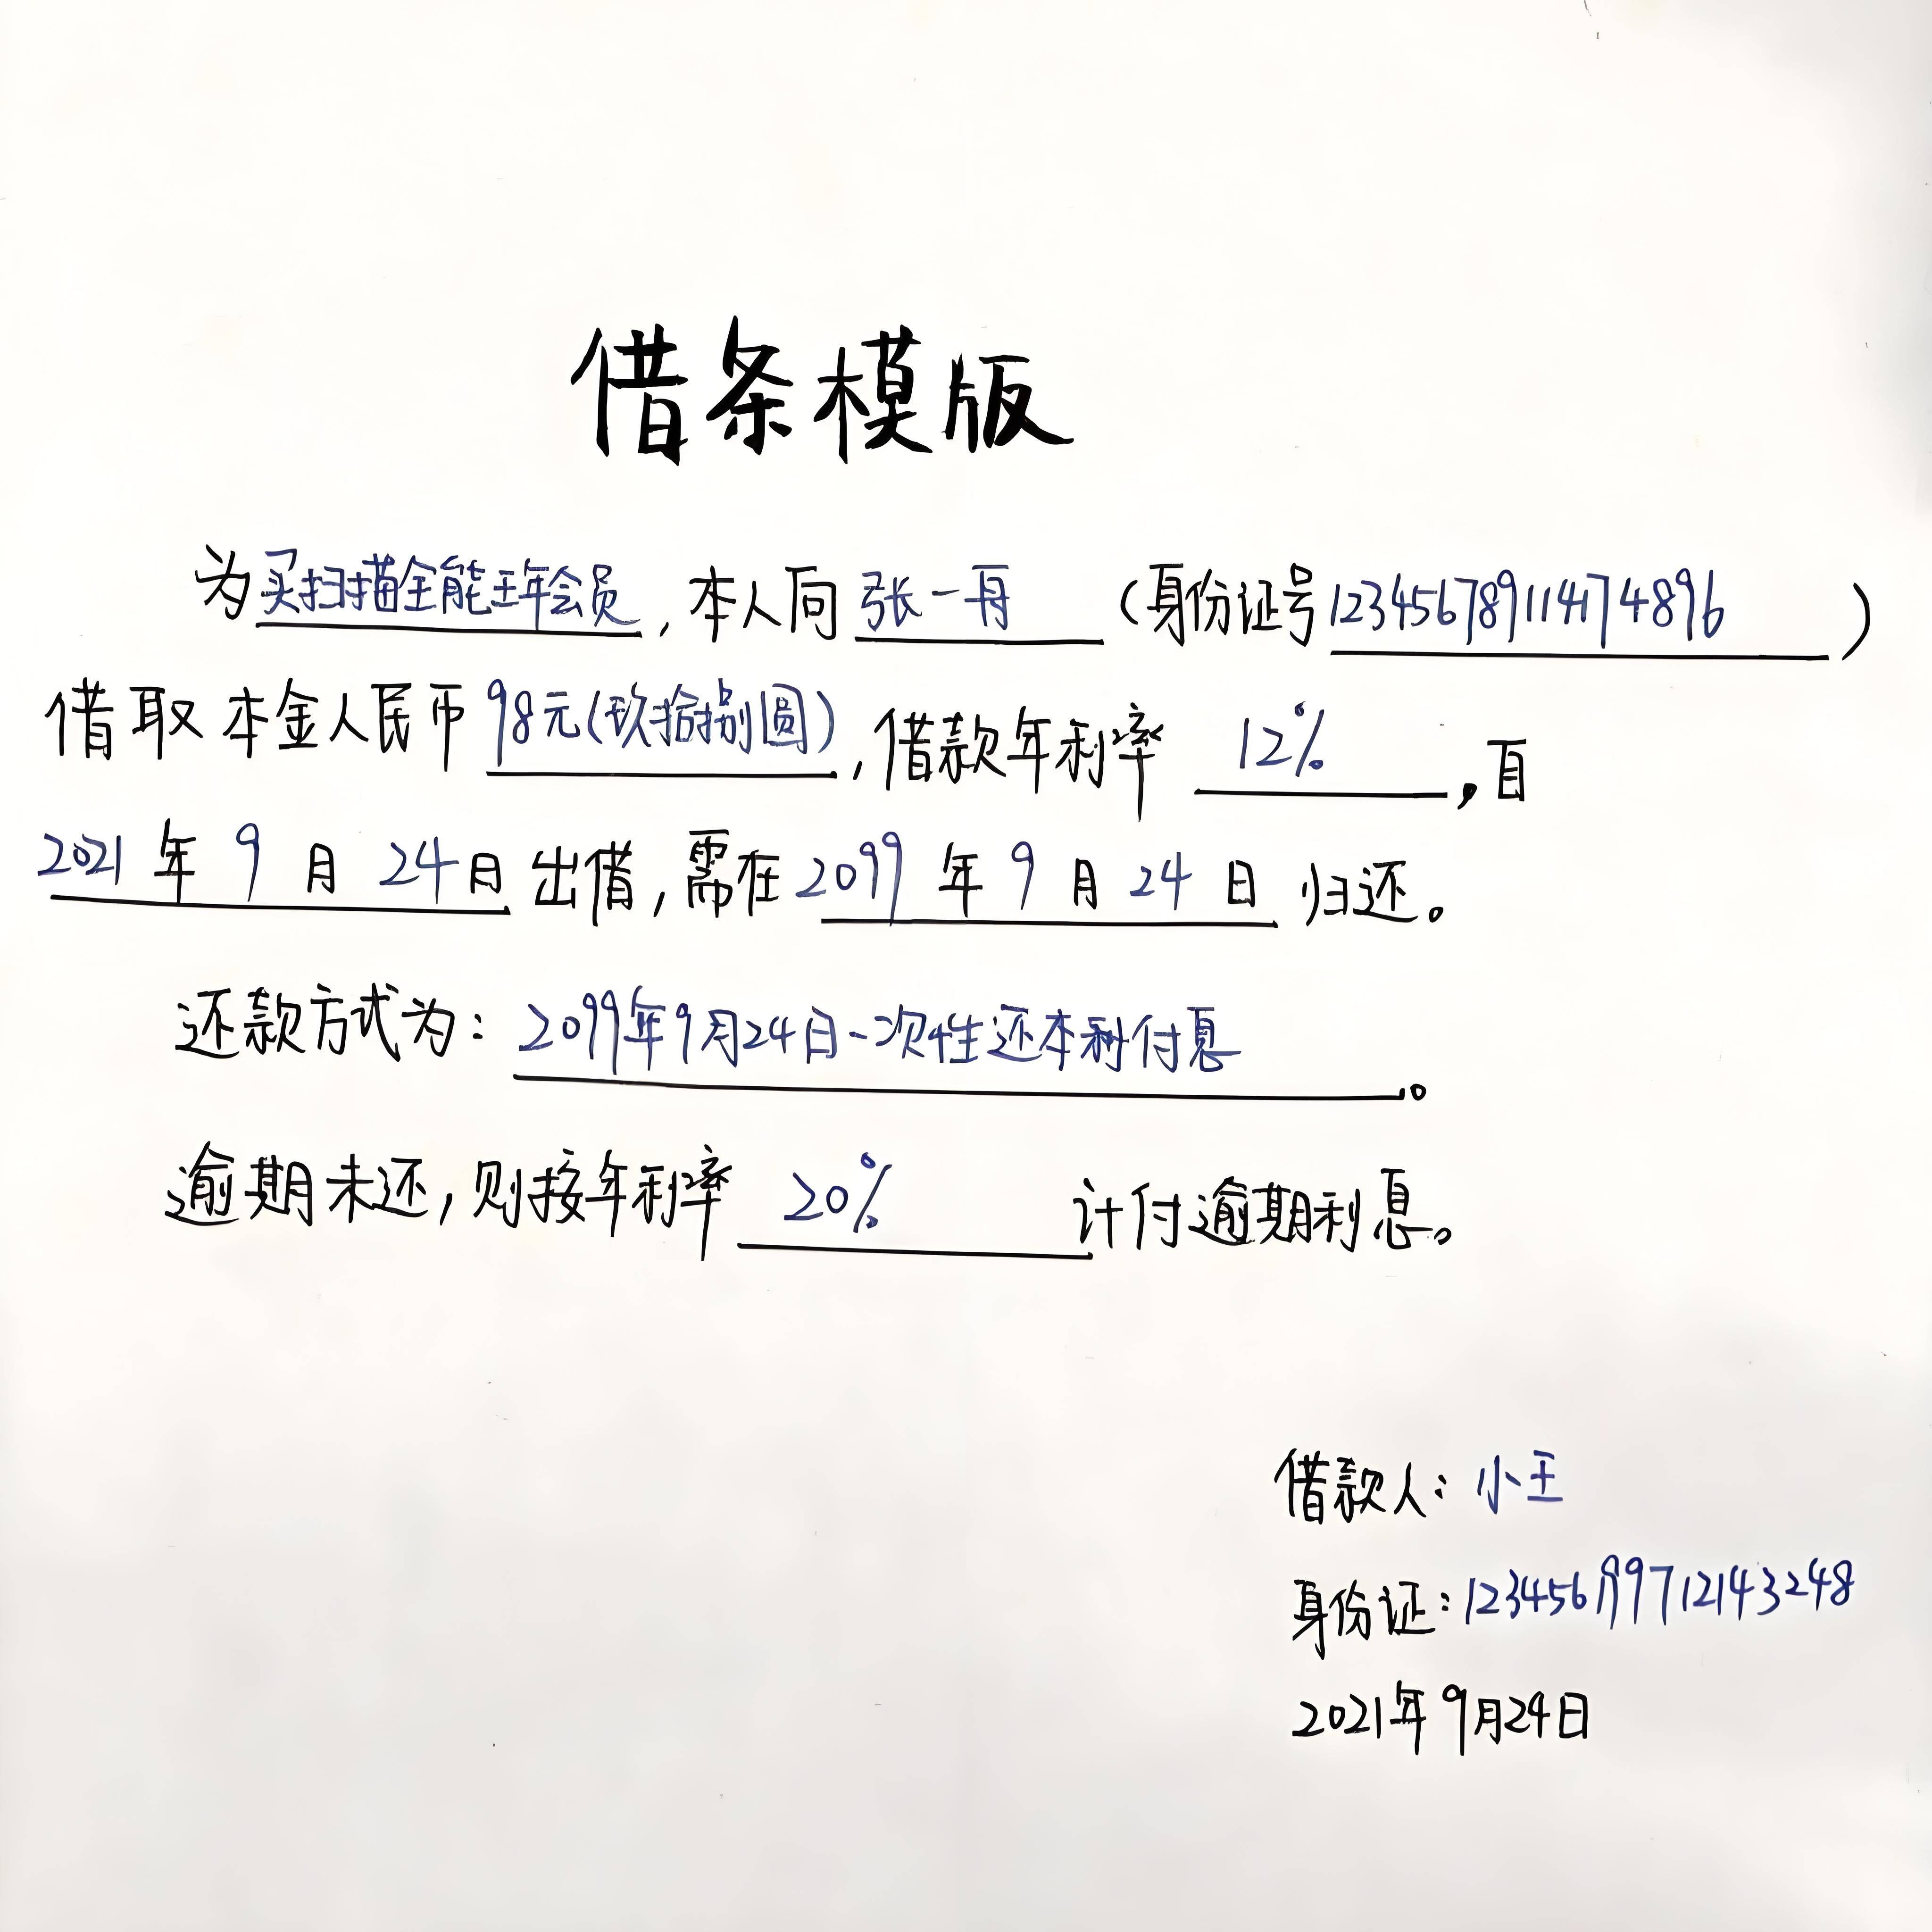 借条模版
为买扫描全能王年会员,本人向张一丹(身份证号123456789114174896)
借取本金人民币98元(玖拾捌圆),借款年利率12%,自
2021年9月24日出借,需在2099年9月24日归还。
还款方式为:2099年9月24日一次性还本付息。
逾期未还,则按年利率20%计付逾期利息。
借款人:小王
身份证:123456199712143248
2021年9月24日